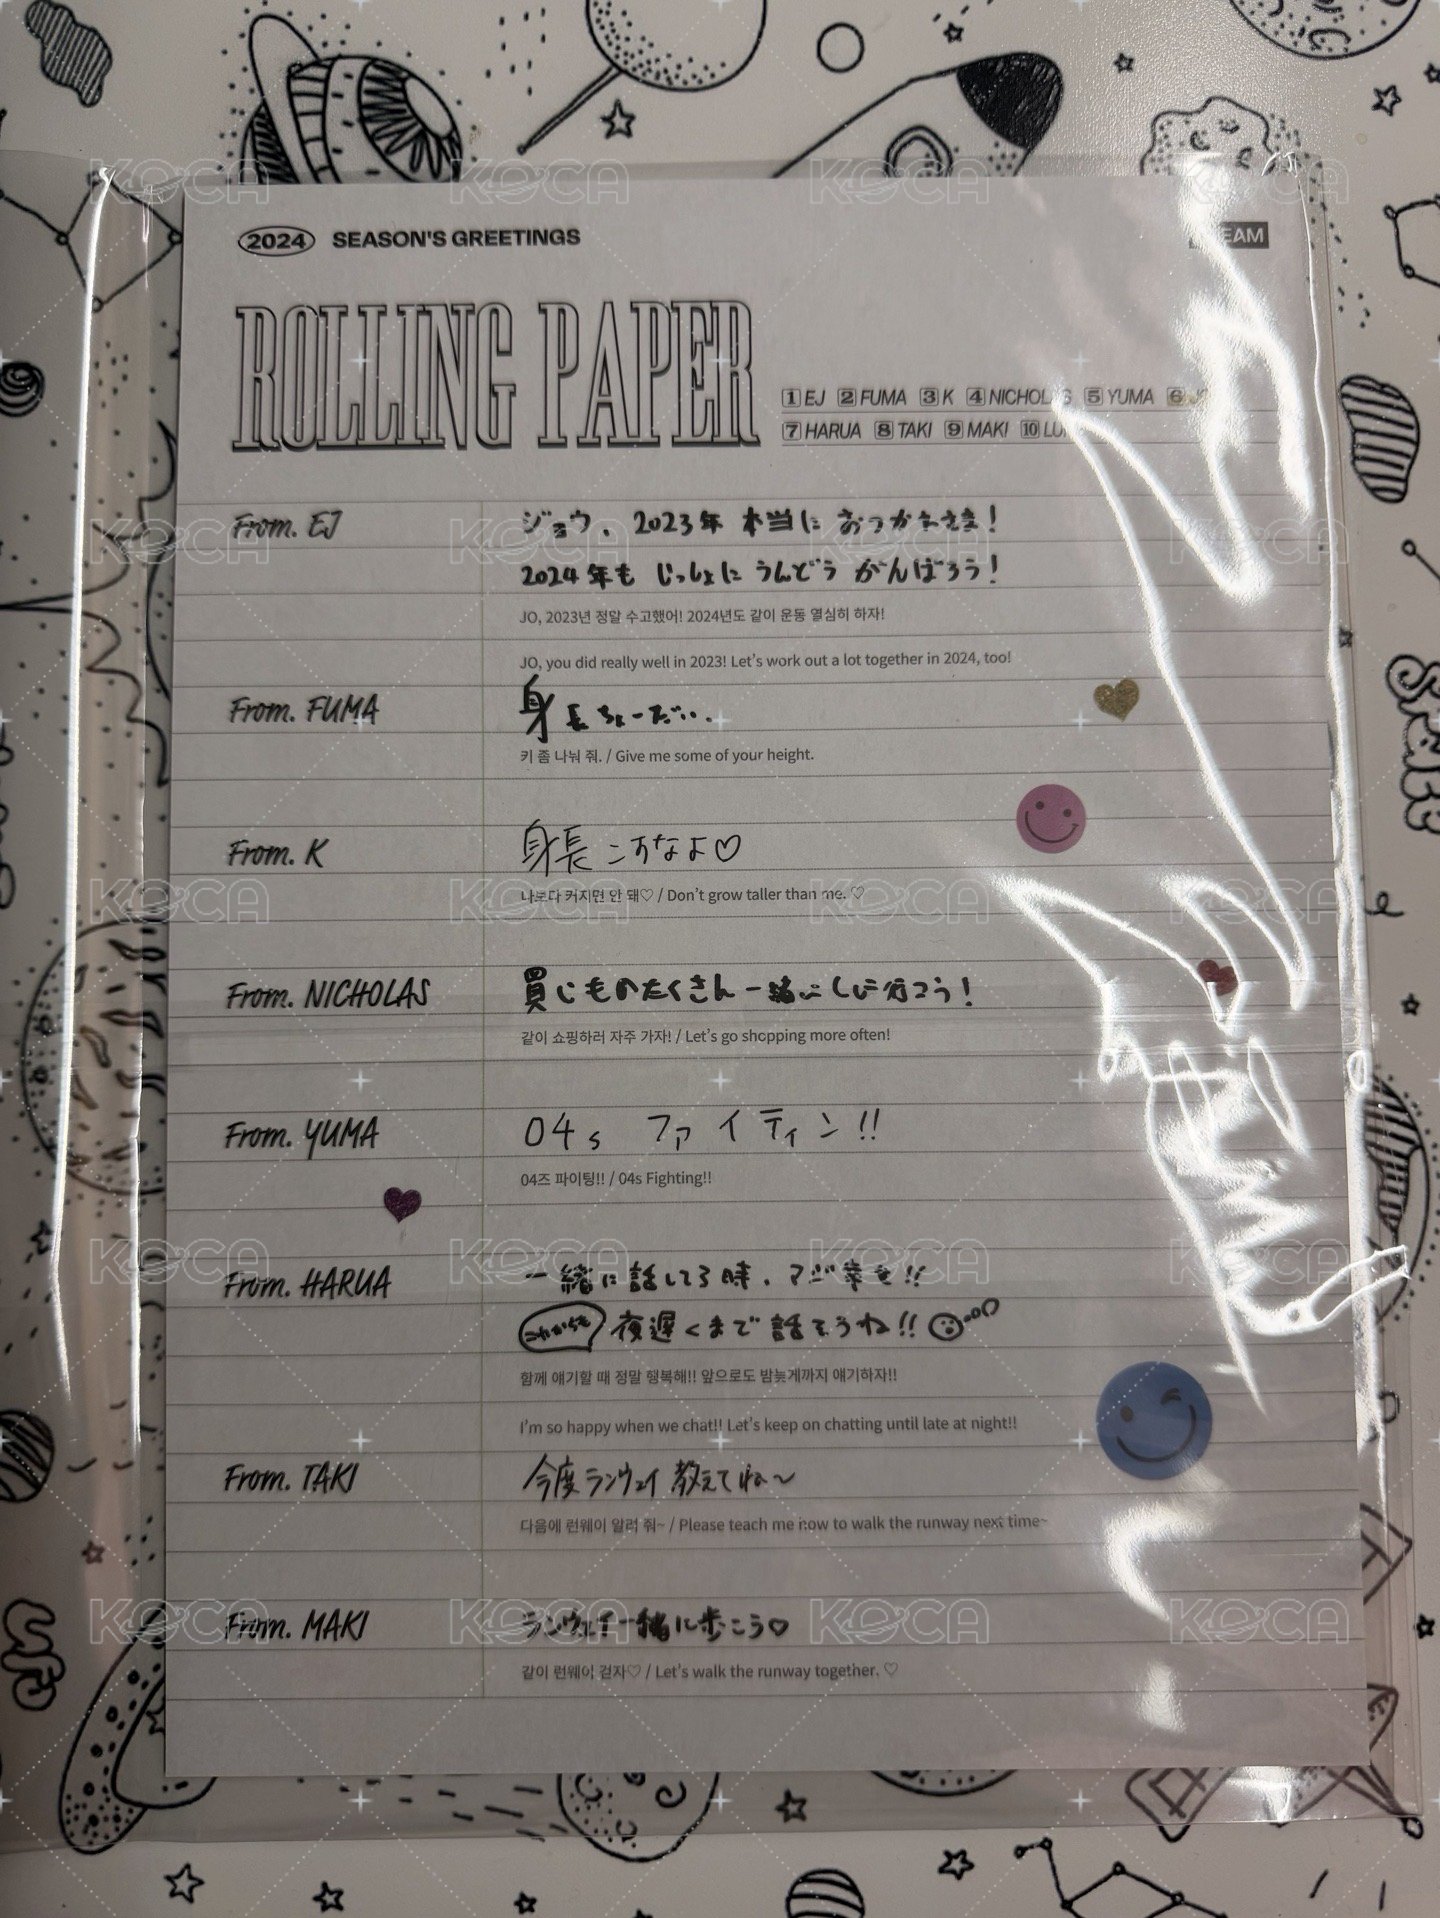 2024 SEASON'S GREETINGS
EAM
ROLLING PAPER
1 EJ 2 FUMA 3 K 4 NICHOLAS 5 YUMA 6
7 HARUA 8 TAKI 9 MAKI 10
From. EJ
ジョウ、2023年 本当に おつかれさま!
2024年も じっしょに うんどう がんばろう!
JO, 2023년 정말 수고했어! 2024년도 같이 운동 열심히 하자!
JO, you did really well in 2023! Let's work out a lot together in 2024, too!
From. FUMA
身長ちょーだい..
키 좀 나눠 줘. / Give me some of your height.
From. K
身長こすなよ♡
나보다 커지면 안 돼♡ / Don't grow taller than me. ♡
From. NICHOLAS
買いものたくさん一緒にしに行こう!
같이 쇼핑하러 자주 가자! / Let's go shopping more often!
From. YUMA
04s ファイティン!!
04즈 파이팅!! / 04s Fighting!!
From. HARUA
一緒に話してる時、マジ幸せ!!
これからも 夜遅くまで話そうね!!
함께 얘기할 때 정말 행복해!! 앞으로도 밤늦게까지 얘기하자!!
I'm so happy when we chat!! Let's keep on chatting until late at night!!
From. TAKI
今度ランウェイ教えてね~
다음에 런웨이 알려 줘~ / Please teach me how to walk the runway next time~
From. MAKI
ランウェイ一緒に歩こう♡
같이 런웨이 걷자♡ / Let's walk the runway together. ♡
KOCA